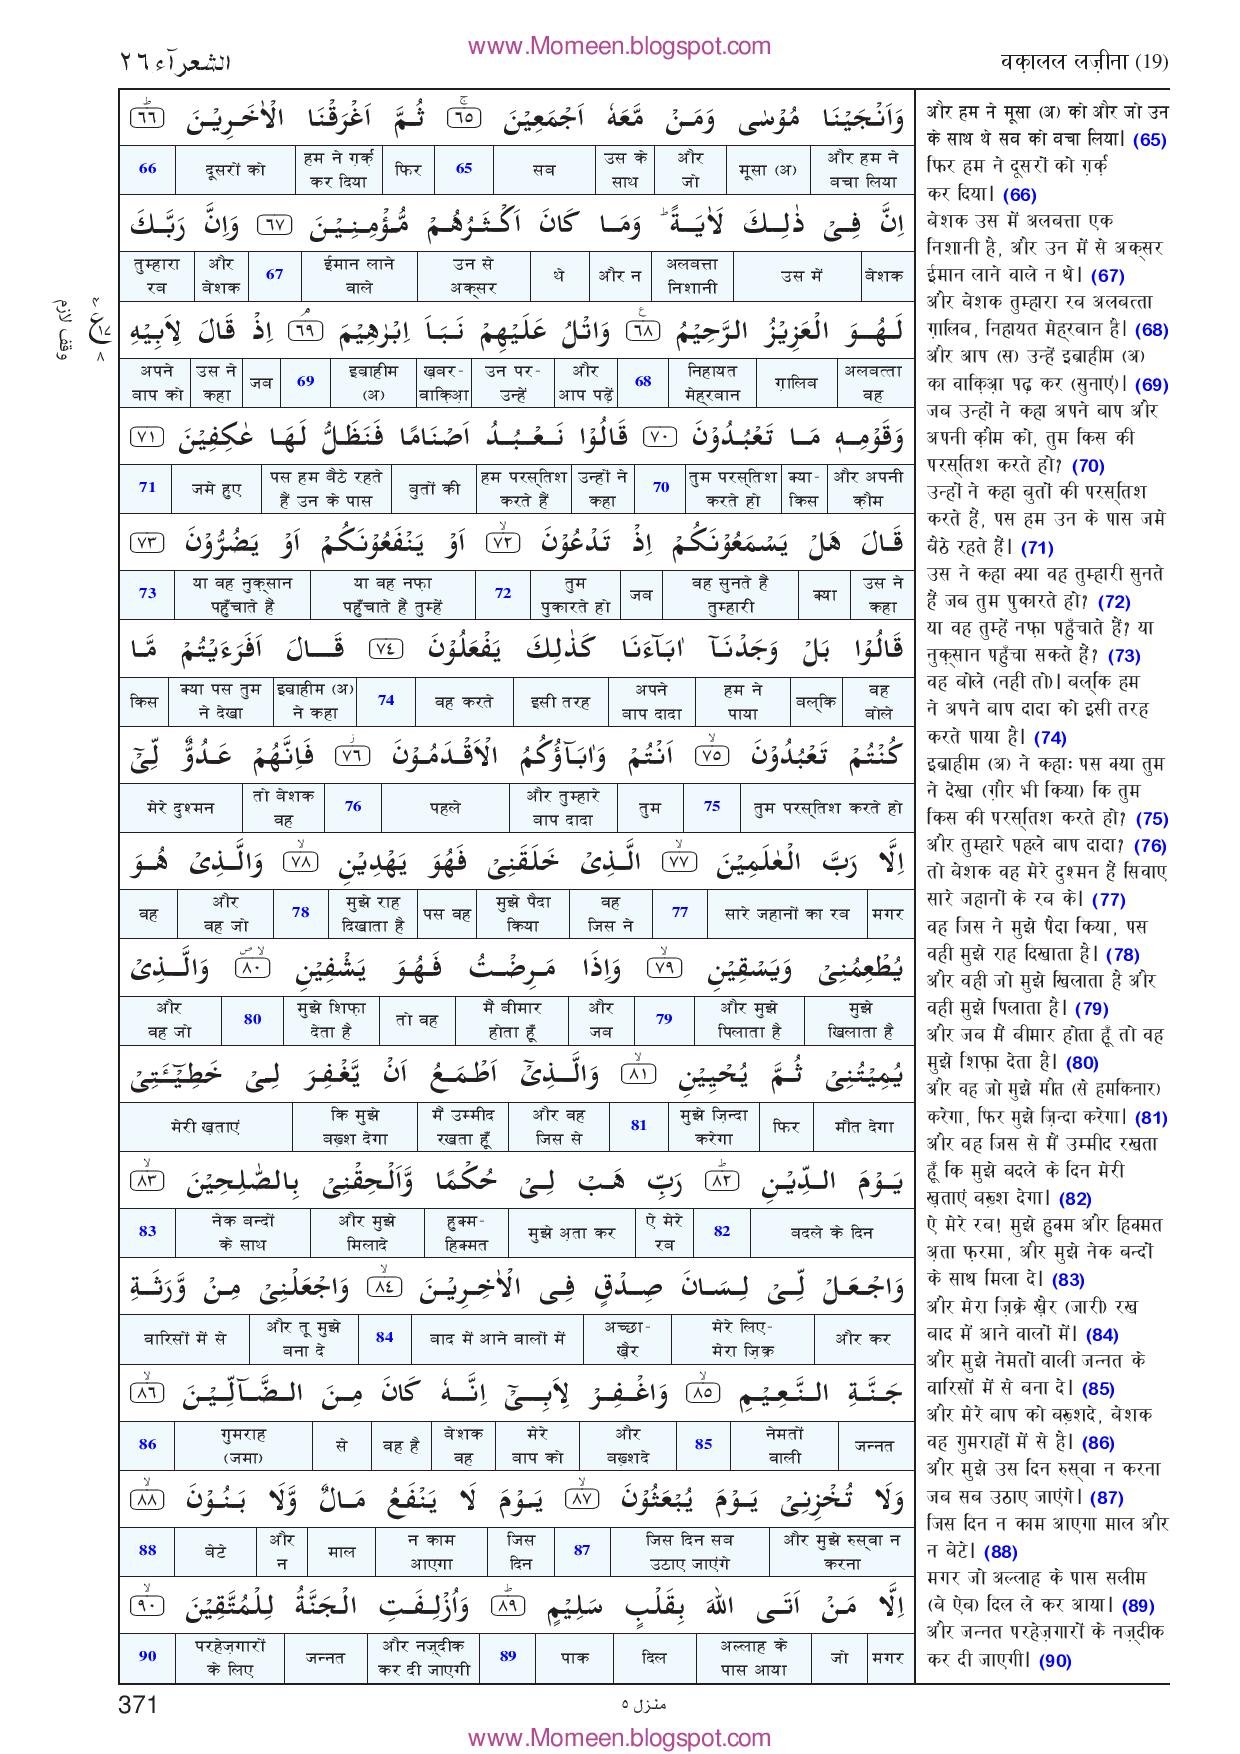 www.Momeen.blogspot.com
الشعرآء ٢٦
वक़ालल लज़ीना (19)
وَاَنْجَيْنَا مُوْسٰى وَمَنْ مَّعَهٗ اَجْمَعِيْنَ ۚ ٦٥ ثُمَّ اَغْرَقْنَا الْاٰخَرِيْنَ ؕ ٦٦
और हम ने बचा लिया | मूसा (अ) | और जो | उस के साथ | सब | 65 | फिर | हम ने ग़र्क़ कर दिया | दूसरों को | 66
اِنَّ فِيْ ذٰلِكَ لَاٰيَةً ؕ وَمَا كَانَ اَكْثَرُهُمْ مُّؤْمِنِيْنَ ٦٧ وَاِنَّ رَبَّكَ
बेशक | उस में | अलबत्ता निशानी | और न | थे | उन से अक्सर | ईमान लाने वाले | 67 | और बेशक | तुम्हारा रब
لَهُوَ الْعَزِيْزُ الرَّحِيْمُ ٦٨ ع وَاتْلُ عَلَيْهِمْ نَبَاَ اِبْرٰهِيْمَ ۘ ٦٩ اِذْ قَالَ لِاَبِيْهِ
अलबत्ता वह | ग़ालिब | निहायत मेह्रबान | 68 | और आप पढ़ें | उन पर- उन्हें | ख़बर- वाक़िआ़ | इब्राहीम (अ) | 69 | जब | उस ने कहा | अपने बाप को
وَقَوْمِهٖ مَا تَعْبُدُوْنَ ٧٠ قَالُوْا نَعْبُدُ اَصْنَامًا فَنَظَلُّ لَهَا عٰكِفِيْنَ ٧١
और अपनी क़ौम | क्या- किस | तुम परस्तिश करते हो | 70 | उन्हों ने कहा | हम परस्तिश करते हैं | बुतों की | पस हम बैठे रहते हैं उन के पास | जमे हुए | 71
قَالَ هَلْ يَسْمَعُوْنَكُمْ اِذْ تَدْعُوْنَ ۙ ٧٢ اَوْ يَنْفَعُوْنَكُمْ اَوْ يَضُرُّوْنَ ٧٣
उस ने कहा | क्या | वह सुनते हैं तुम्हारी | जब | तुम पुकारते हो | 72 | या वह नफ़ा पहुँचाते हैं तुम्हें | या वह नुक़्सान पहुँचाते हैं | 73
قَالُوْا بَلْ وَجَدْنَآ اٰبَآءَنَا كَذٰلِكَ يَفْعَلُوْنَ ٧٤ قَالَ اَفَرَءَيْتُمْ مَّا
वह बोले | बल्कि | हम ने पाया | अपने बाप दादा | इसी तरह | वह करते | 74 | इब्राहीम (अ) ने कहा | क्या पस तुम ने देखा | किस
كُنْتُمْ تَعْبُدُوْنَ ۙ ٧٥ اَنْتُمْ وَاٰبَآؤُكُمُ الْاَقْدَمُوْنَ ۡ ٧٦ فَاِنَّهُمْ عَدُوٌّ لِّيْٓ
तुम परस्तिश करते हो | 75 | तुम | और तुम्हारे बाप दादा | पहले | 76 | तो बेशक वह | मेरे दुश्मन
اِلَّا رَبَّ الْعٰلَمِيْنَ ۙ ٧٧ الَّذِيْ خَلَقَنِيْ فَهُوَ يَهْدِيْنِ ۙ ٧٨ وَالَّذِيْ هُوَ
मगर | सारे जहानों का रब | 77 | वह जिस ने | मुझे पैदा किया | पस वह | मुझे राह दिखाता है | 78 | और वह जो | वह
يُطْعِمُنِيْ وَيَسْقِيْنِ ۙ ٧٩ وَاِذَا مَرِضْتُ فَهُوَ يَشْفِيْنِ ۙ ٨٠ وَالَّذِيْ
मुझे खिलाता है | और मुझे पिलाता है | 79 | और जब | मैं बीमार होता हूँ | तो वह | मुझे शिफ़ा देता है | 80 | और वह जो
يُمِيْتُنِيْ ثُمَّ يُحْيِيْنِ ۙ ٨١ وَالَّذِيْٓ اَطْمَعُ اَنْ يَّغْفِرَ لِيْ خَطِيْٓـَٔتِيْ
मौत देगा | फिर | मुझे ज़िन्दा करेगा | 81 | और वह जिस से | मैं उम्मीद रखता हूँ | कि मुझे बख़्श देगा | मेरी ख़ताएं
يَوْمَ الدِّيْنِ ؕ ٨٢ رَبِّ هَبْ لِيْ حُكْمًا وَّاَلْحِقْنِيْ بِالصّٰلِحِيْنَ ۙ ٨٣
बदले के दिन | 82 | ऐ मेरे रब | मुझे अ़ता कर | हुक्म- हिक्मत | और मुझे मिलादे | नेक बन्दों के साथ | 83
وَاجْعَلْ لِّيْ لِسَانَ صِدْقٍ فِي الْاٰخِرِيْنَ ۙ ٨٤ وَاجْعَلْنِيْ مِنْ وَّرَثَةِ
और कर | मेरे लिए- मेरा ज़िक्र | अच्छा- ख़ैर | बाद में आने वालों में | 84 | और तू मुझे बना दे | वारिसों में से
جَنَّةِ النَّعِيْمِ ۙ ٨٥ وَاغْفِرْ لِاَبِيْٓ اِنَّهٗ كَانَ مِنَ الضَّآلِّيْنَ ۙ ٨٦
जन्नत | नेमतों वाली | 85 | और बख़्शदे | मेरे बाप को | बेशक वह | वह है | से | गुमराह (जमा) | 86
وَلَا تُخْزِنِيْ يَوْمَ يُبْعَثُوْنَ ۙ ٨٧ يَوْمَ لَا يَنْفَعُ مَالٌ وَّلَا بَنُوْنَ ۙ ٨٨
और मुझे रुस्वा न करना | जिस दिन सब उठाए जाएंगे | 87 | जिस दिन | न काम आएगा | माल | और न | बेटे | 88
اِلَّا مَنْ اَتَى اللّٰهَ بِقَلْبٍ سَلِيْمٍ ؕ ٨٩ وَاُزْلِفَتِ الْجَنَّةُ لِلْمُتَّقِيْنَ ۙ ٩٠
मगर | जो | अल्लाह के पास आया | दिल | पाक | 89 | और नज़्दीक कर दी जाएगी | जन्नत | परहेज़गारों के लिए | 90
और हम ने मूसा (अ) को और जो उन
के साथ थे सब को बचा लिया। (65)
फिर हम ने दूसरों को ग़र्क़
कर दिया। (66)
बेशक उस में अलबत्ता एक
निशानी है, और उन में से अक्सर
ईमान लाने वाले न थे। (67)
और बेशक तुम्हारा रब अलबत्ता
ग़ालिब, निहायत मेह्रबान है। (68)
और आप (स) उन्हें इब्राहीम (अ)
का वाक़िआ़ पढ़ कर (सुनाएं)। (69)
जब उन्हों ने कहा अपने बाप और
अपनी क़ौम को, तुम किस की
परस्तिश करते हो? (70)
उन्हों ने कहा बुतों की परस्तिश
करते हैं, पस हम उन के पास जमे
बैठे रहते हैं। (71)
उस ने कहा क्या वह तुम्हारी सुनते
हैं जब तुम पुकारते हो? (72)
या वह तुम्हें नफ़ा पहुँचाते हैं? या
नुक़्सान पहुँचा सकते हैं? (73)
वह बोले (नहीं तो)। बल्कि हम
ने अपने बाप दादा को इसी तरह
करते पाया है। (74)
इब्राहीम (अ) ने कहाः पस क्या तुम
ने देखा (ग़ौर भी किया) कि तुम
किस की परस्तिश करते हो? (75)
और तुम्हारे पहले बाप दादा? (76)
तो बेशक वह मेरे दुश्मन हैं सिवाए
सारे जहानों के रब के। (77)
वह जिस ने मुझे पैदा किया, पस
वही मुझे राह दिखाता है। (78)
और वही जो मुझे खिलाता है और
वही मुझे पिलाता है। (79)
और जब मैं बीमार होता हूँ तो वह
मुझे शिफ़ा देता है। (80)
और वह जो मुझे मौत (से हमकिनार)
करेगा, फिर मुझे ज़िन्दा करेगा। (81)
और वह जिस से मैं उम्मीद रखता
हूँ कि मुझे बदले के दिन मेरी
ख़ताएं बख़्श देगा। (82)
ऐ मेरे रब! मुझे हुक्म और हिक्मत
अ़ता फ़रमा, और मुझे नेक बन्दों
के साथ मिला दे। (83)
और मेरा ज़िक्रे ख़ैर (जारी) रख
बाद में आने वालों में। (84)
और मुझे नेमतों वाली जन्नत के
वारिसों में से बना दे। (85)
और मेरे बाप को बख़्शदे, बेशक
वह गुमराहों में से है। (86)
और मुझे उस दिन रुस्वा न करना
जब सब उठाए जाएंगे। (87)
जिस दिन न काम आएगा माल और
न बेटे। (88)
मगर जो अल्लाह के पास सलीम
(बे ऐब) दिल ले कर आया। (89)
और जन्नत परहेज़गारों के नज़्दीक
कर दी जाएगी। (90)
وقف لازم
ع
١٧
٨
371
منزل ٥
www.Momeen.blogspot.com